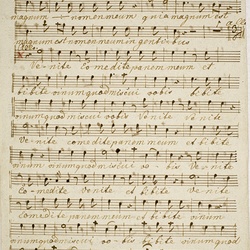 magnum nomen meum quia magnum est
magnum est nomen meum in gentibus
Venite Comedite panem meum et
bibite vinum quod miscui vobis bibite
vinum quod miscui vobis Venite
Venite comedite panem meum et bibite
vinum quod miscui vobis Ve
Comedite Venite et bibite Venite
Comedite panem meum et bibite vinum
vinum quod miscui vobis bibite vinum quod